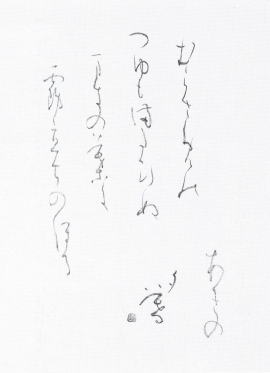 むらさめの
つゆもまたひぬ
まきの葉に
霧たちのほる
あきの
夕暮